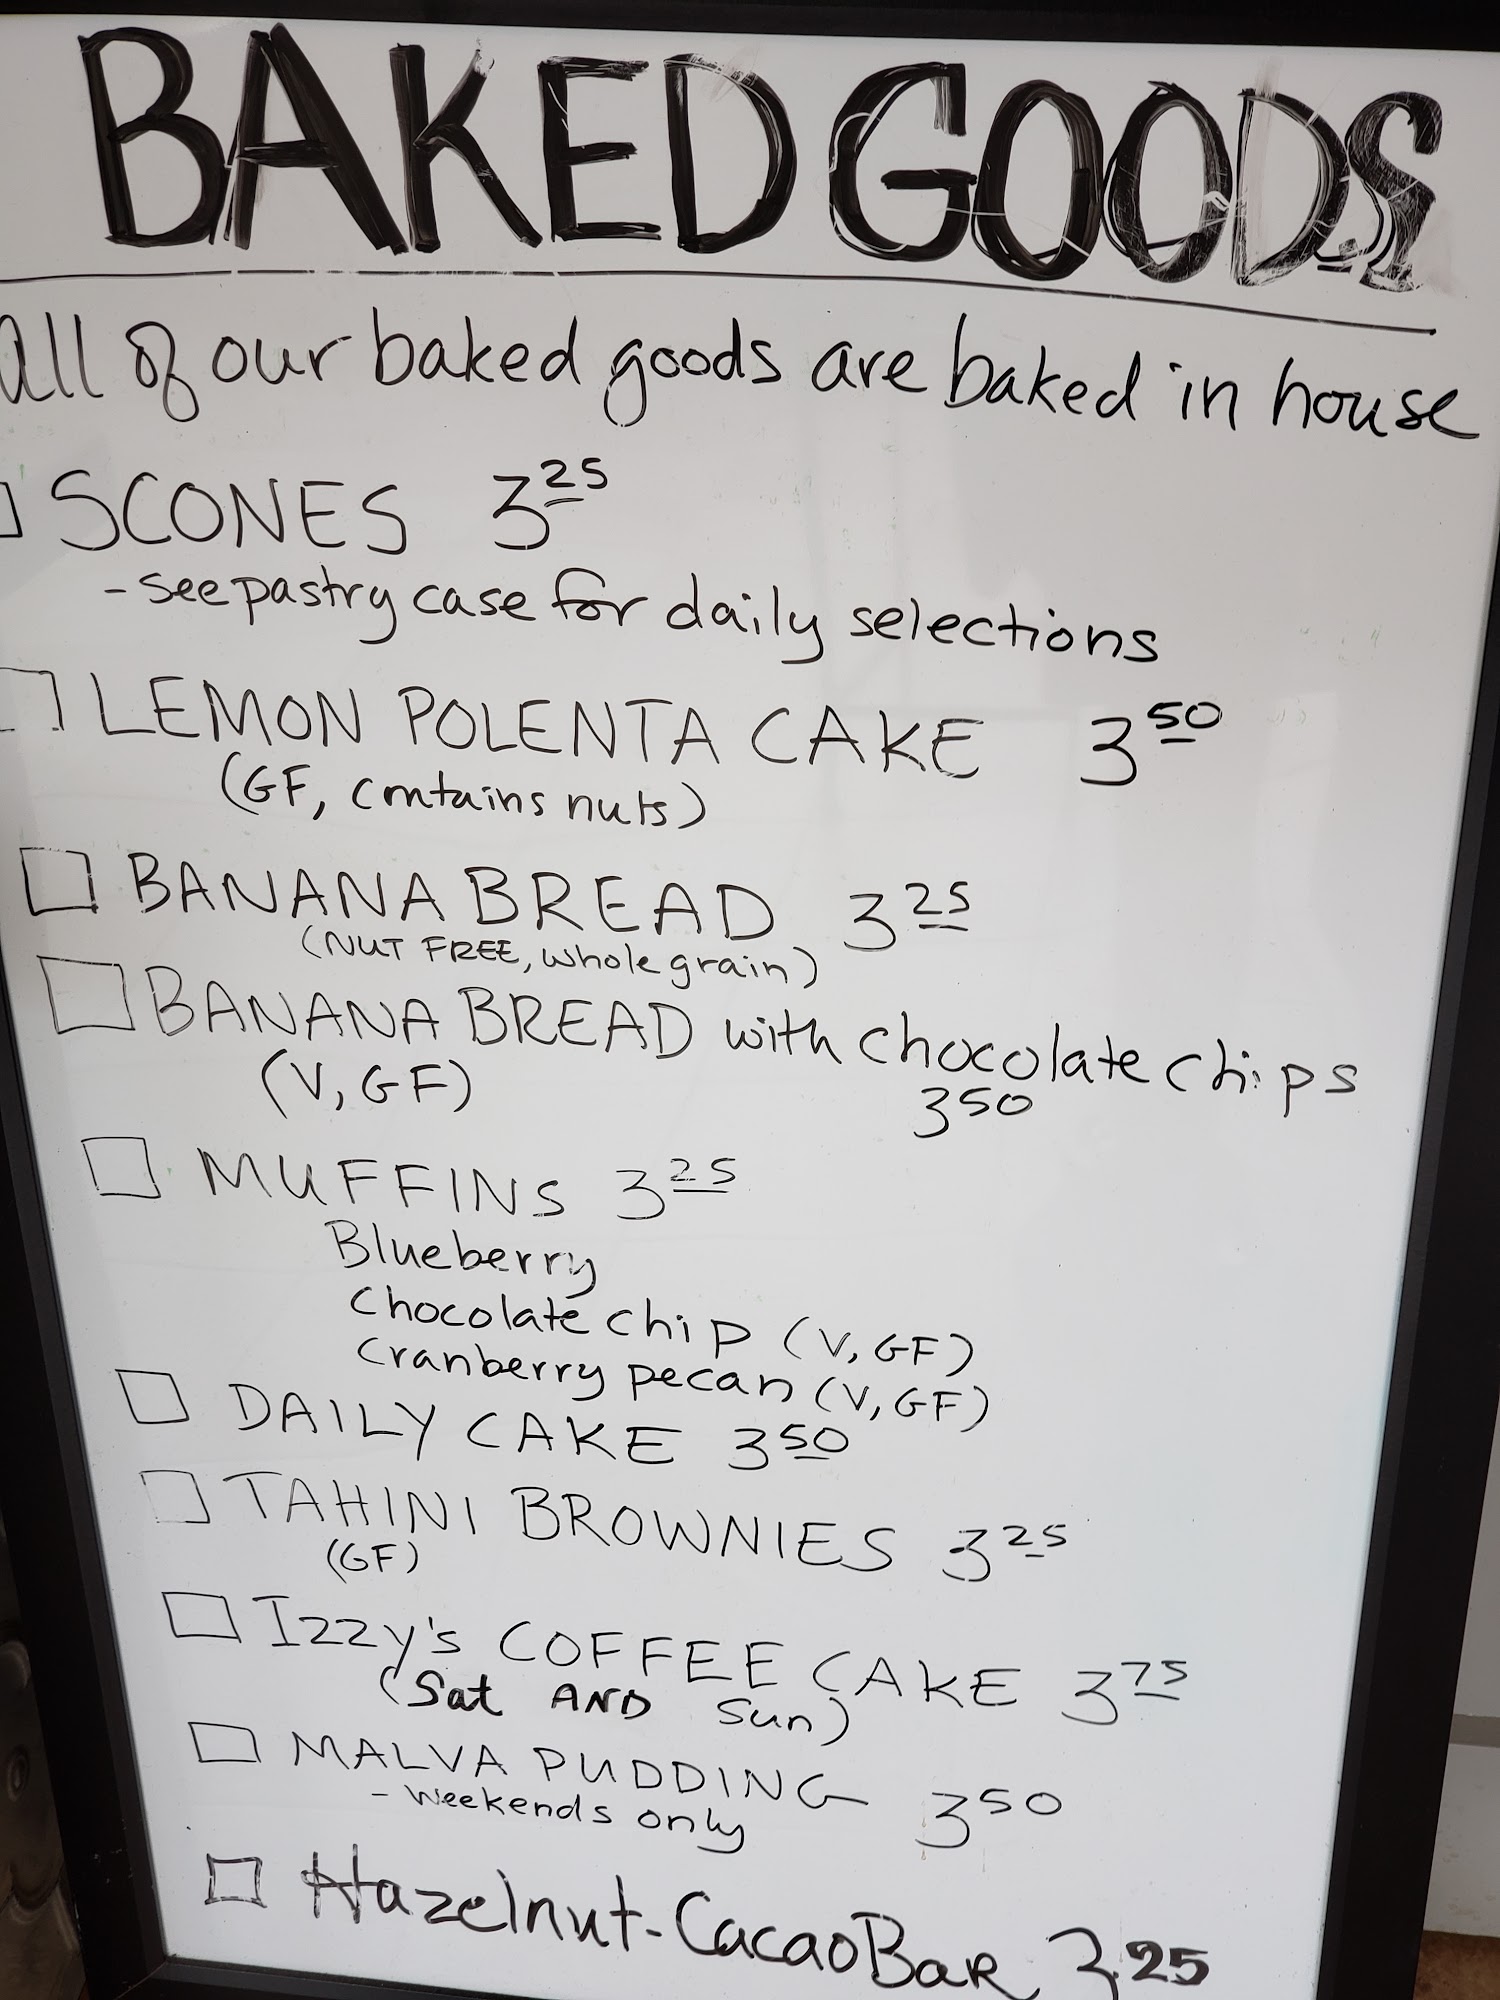 BAKED GOODS
all of our baked goods are baked in house
SCONES 3 25
- see pastry case for daily selections
LEMON POLENTA CAKE 3 50
(GF, contains nuts)
BANANA BREAD 3 25
(NUT FREE, whole grain)
BANANA BREAD with chocolate chips
(V, GF) 3 50
MUFFINS 3 25
Blueberry
Chocolate chip (V, GF)
Cranberry pecan (V, GF)
DAILY CAKE 3 50
TAHINI BROWNIES 3 25
(GF)
Izzy's COFFEE CAKE 3 75
(Sat AND Sun)
MALVA PUDDING 3 50
- Weekends only
Hazelnut-Cacao BAR 3.25